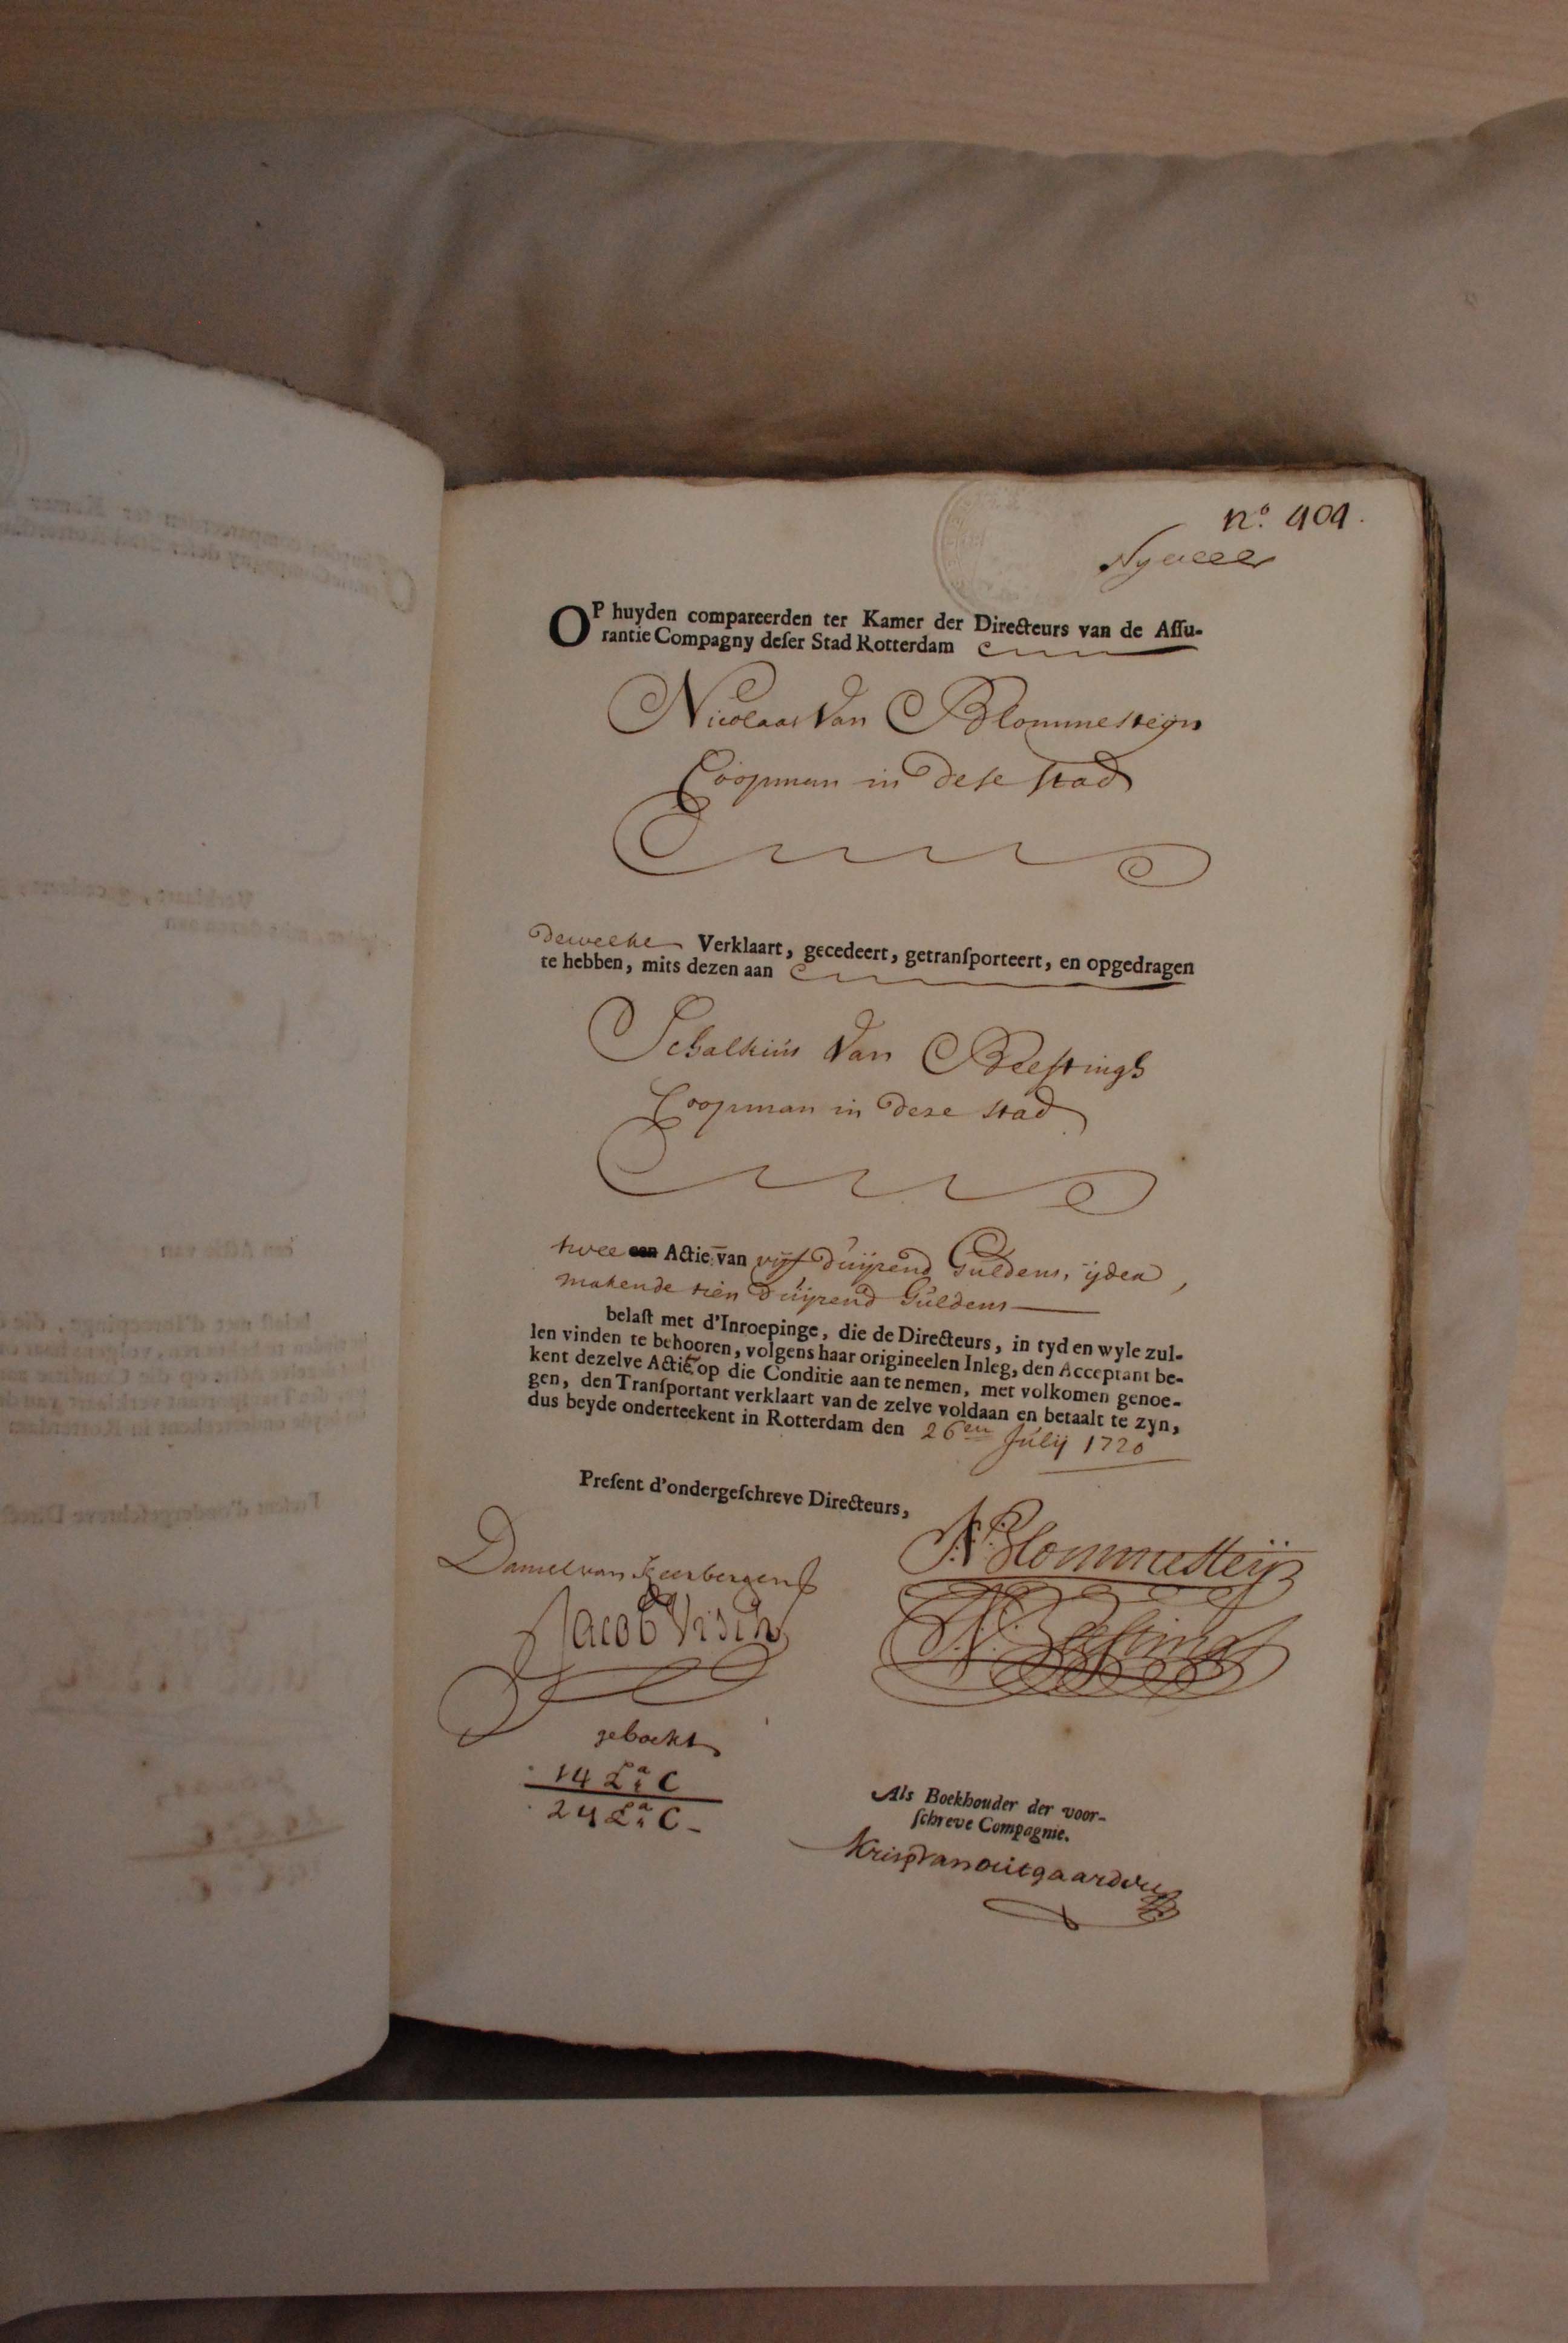 n.o 404.
OP huyden compareerden ter Kamer der Directeurs van de Assu-
rantie Compagny deser Stad Rotterdam
Nicolaas Van Blommesteijn
Coopman in dese stad
dewelke Verklaart, gecedeert, getransporteert, en opgedragen
te hebben, mits dezen aan
Schalkius Van Beestingh
Coopman in deze stad
twee een Actie: van vijf duijzend Guldens, ijder,
makende tien duijzend Guldens
belast met d'Inroepinge, die de Directeurs, in tyd en wyle zul-
len vinden te behooren, volgens haar origineelen Inleg, den Acceptant be-
kent dezelve Actie op die Conditie aan te nemen, met volkomen genoe-
gen, den Transportant verklaart van de zelve voldaan en betaalt te zyn,
dus beyde onderteekent in Rotterdam den 26en Julij 1720
Present d'ondergeschreve Directeurs,
N: Blommesteijn
Daniel van Keerbergen
Jacob Visch
geboekt
14 La: C
24 La: C
Als Boekhouder der voor-
schreve Compagnie.